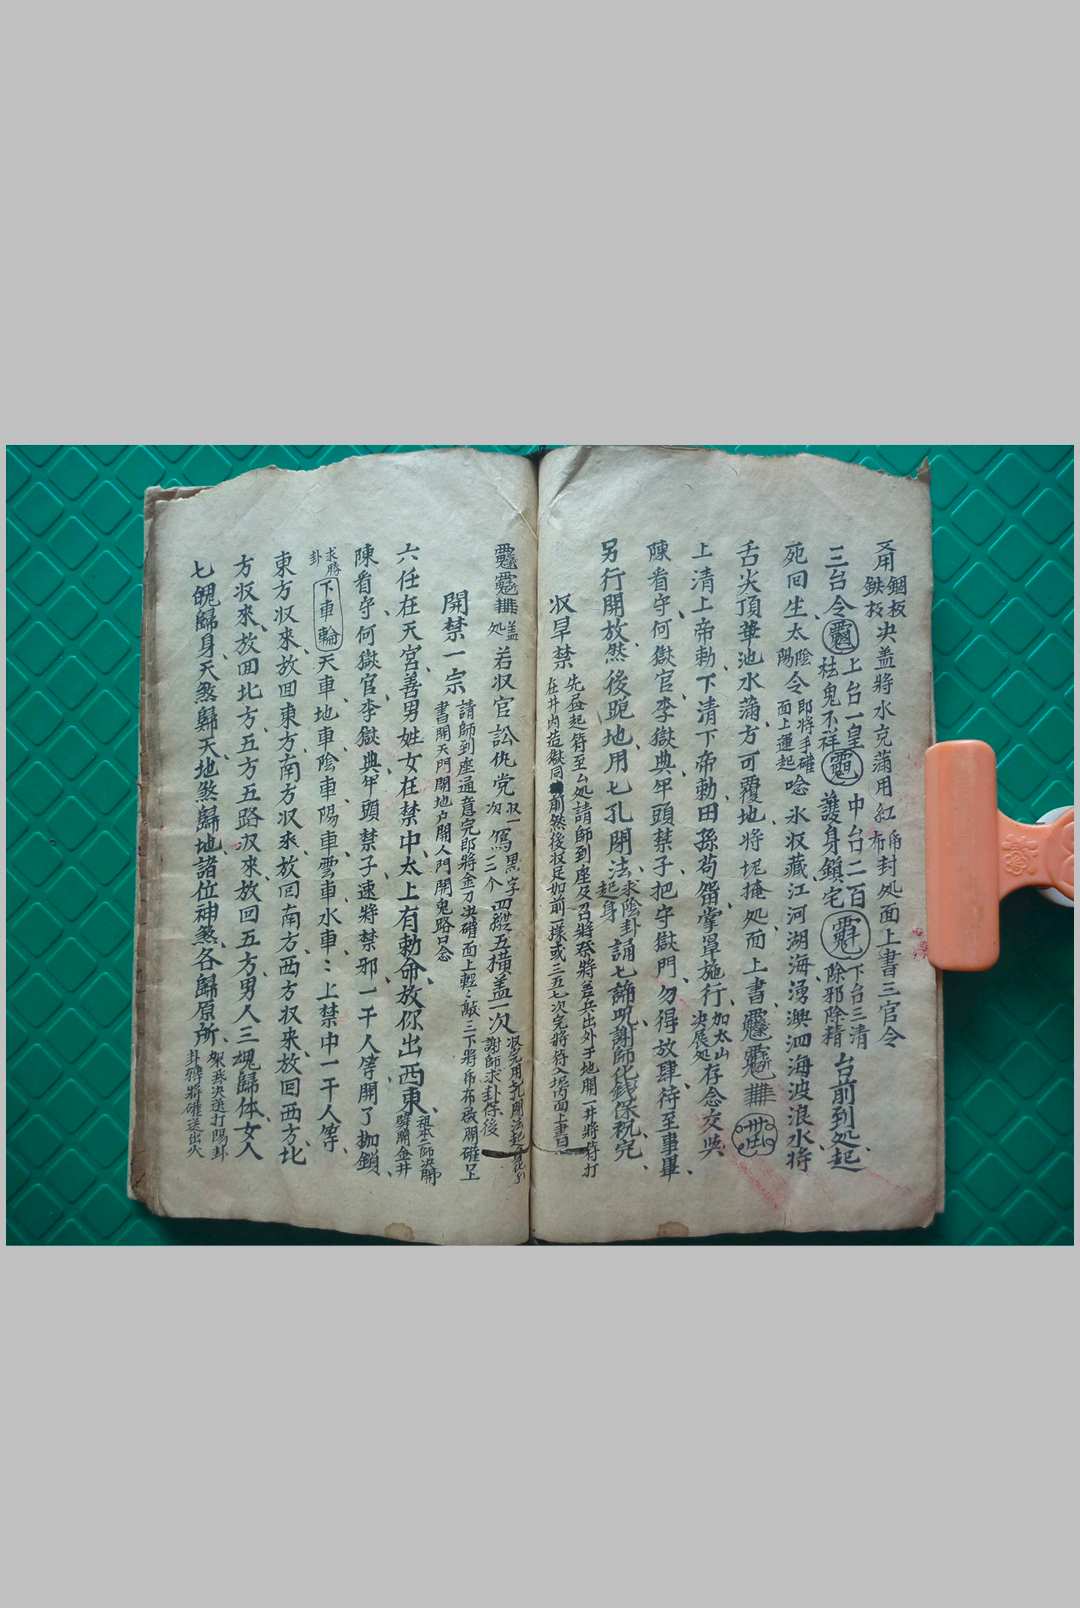 又用銅板鉄板决盖將水克蒲用紅布角封处面上書三官令
三台令上台一皇袪鬼不祥中台二百護身鎖宅下台三清除邪除精台前到处起
死回生太陰太陽令即將手碓面上運起唸氷収藏江河湖海湧澳泗海波浪水將
舌尖頂華池水蒲方可覆地將坭掩处而上書
上清上帝勅、下清下帝勅田孫苟留掌罩施行、加太山决展处存念交兵
陳着守、何獄官、李獄典、年頭禁子、把守獄門、勿得放肆、待至事畢、
另行開放然後跪地用七孔閉法求陰卦起身誦七諦咒謝師化錢保稅完、
収旱禁 先昼起符至厶处請師到座及召將祭將喜兵出外于地開一井將符打
在井內造獄同前然後収足如前一樣或三五七次完將符入坭內面上書
盖处若収官訟仇党収一次寫黑字三个四縱五橫盖一次収完用七孔閉法起身
謝師求卦保後
開禁一宗 請師到座通意完即將金刀决碓面上輕輕敲三下將吊布啟開碓呈
書開天門開地户開人門開鬼路口念
六任在天宮善男姓女在禁中太上有勅命放你出西東、祖本二師决開
陳着守、何獄官、李獄典、年頭禁子速將禁邪一干人等開了枷鎖、
求勝卦 下車輪 天車、地車、陰車、陽車、雲車、水車、上禁中一干人等、
東方収來、放回東方、南方収來、放回南方、西方収來、放回西方、北
方収來、放回北方、五方五路収來、放回五方男人三魂歸体、女人
七魄歸身、天煞歸天、地煞歸地、諸位神煞各歸原所、架殊决連打陽卦
卦轉將碓送出火